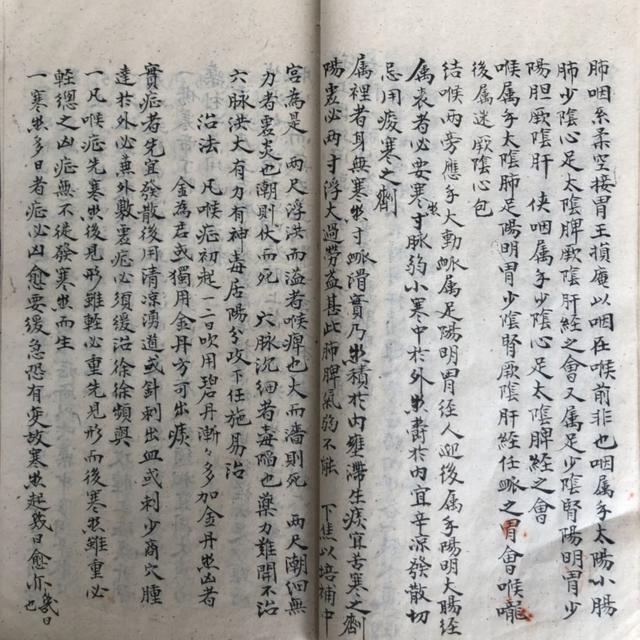 肺咽系柔空接胃王損庵以咽在喉前非也咽属手太陽小腸
肺少陰心足太陰脾厥陰肝經之會又属足少陰腎陽明胃少
陽胆厥陰肝　侠咽属手少陰心足太陰脾經之會
喉属手太陰肺足陽明胃少陰腎厥陰肝經任脉之胃會喉嚨
後属迷厥陰心包
結喉两旁應手大動脉属足陽明胃径人迎後属手陽明大腸徑
属表者必要寒热寸脉弱小寒中於外热欝於内宜辛凉發散切
忌用疫寒之劑
属裡者身無寒热寸脉滑實乃热積於内壅滯生痰宜苦寒之劑
陽虚必两寸浮大過勞益甚此肺脾氣弱不能　下焦以培補中
宫為是　两尺浮洪而溢者喉痺也大而濇則死　两尺潮細無
力者虚炎也潮則伏而死　六脉沉細者毒陷也藥力難開不治
六脉洪大有力有神毒居陽分攻下任施易治
治法　凡喉症初起一二日吹用碧丹漸々多加金丹热凶者
金為君或獨用金丹方可出痰
實症者先宜發散後用清凉湧道或針刺出血或刺少商穴腫
達於外必兼外敷虚症必須緩治徐徐頻與
一凡喉症先寒热後見形雖輕必重先見形而後寒热雖重必
輕總之凶症無不徒發寒热而生
一寒热多日者症必凶愈要緩急恐有变故寒热起幾日愈亦幾日也